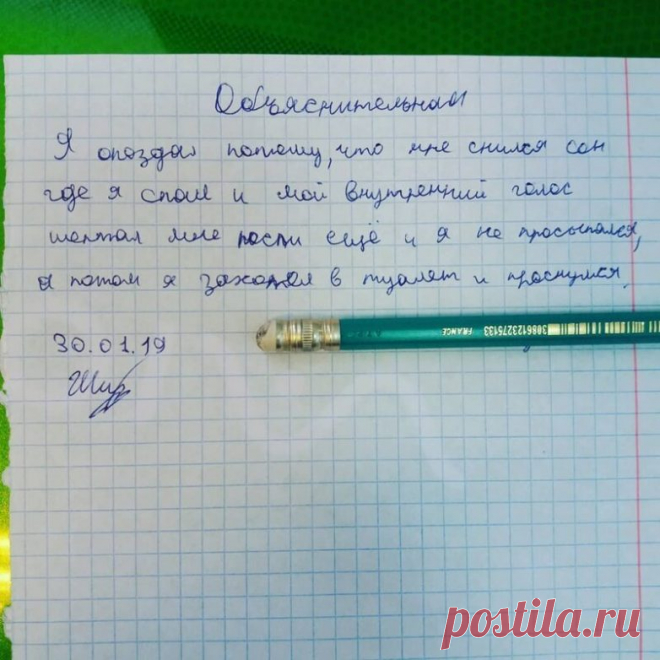 Объяснительная
Я опоздал потому, что мне снился сон
где я спал и мой внутренний голос
шептал мне поспи ещё и я не просыпался,
а потом я захотел в туалет и проснулся.
30.01.19
FRANCE 3086123275133
postila.ru